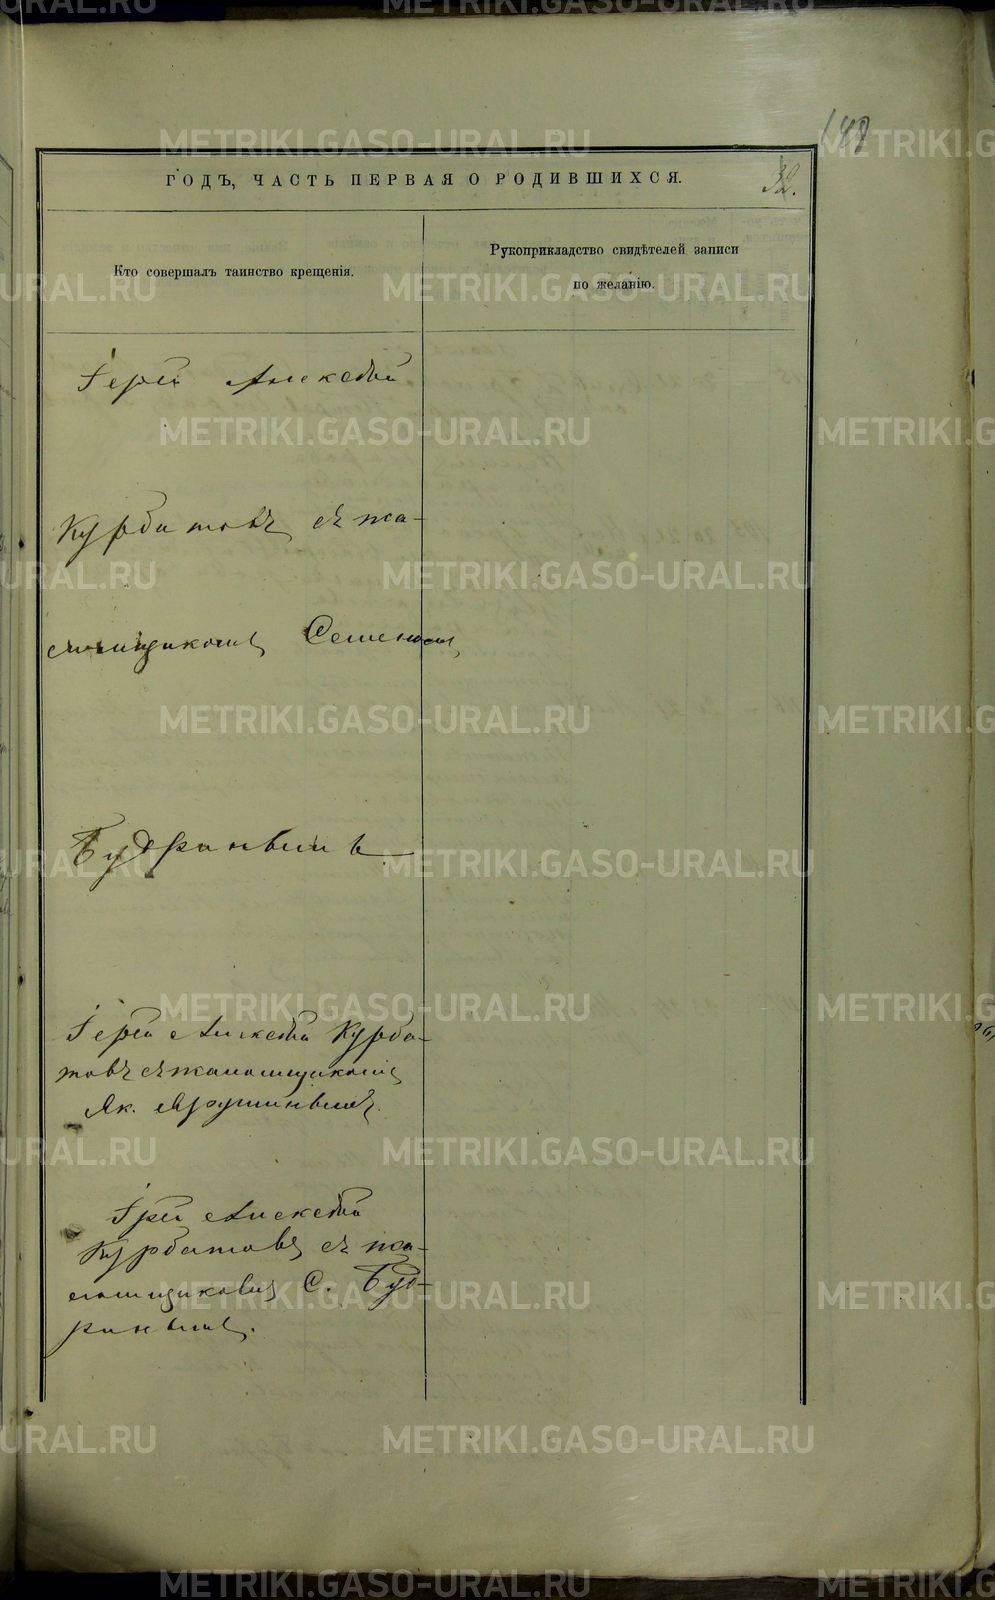 148
ГОДЪ, ЧАСТЬ ПЕРВАЯ О РОДИВШИХСЯ.
32.
Кто совершалъ таинство крещенія.
Рукоприкладство свидѣтелей записи
по желанію.
Іерей Алексѣй
Курбатовъ съ псa-
ломщикомъ Семеномъ
Будринымъ
Іерей Алексѣй Курба-
товъ съ псаломщикомъ
Як.
Іерей Алексѣй
Курбатовъ съ пса-
ломщикомъ С. Буд-
ринымъ.
METRIKI.GASO-URAL.RU